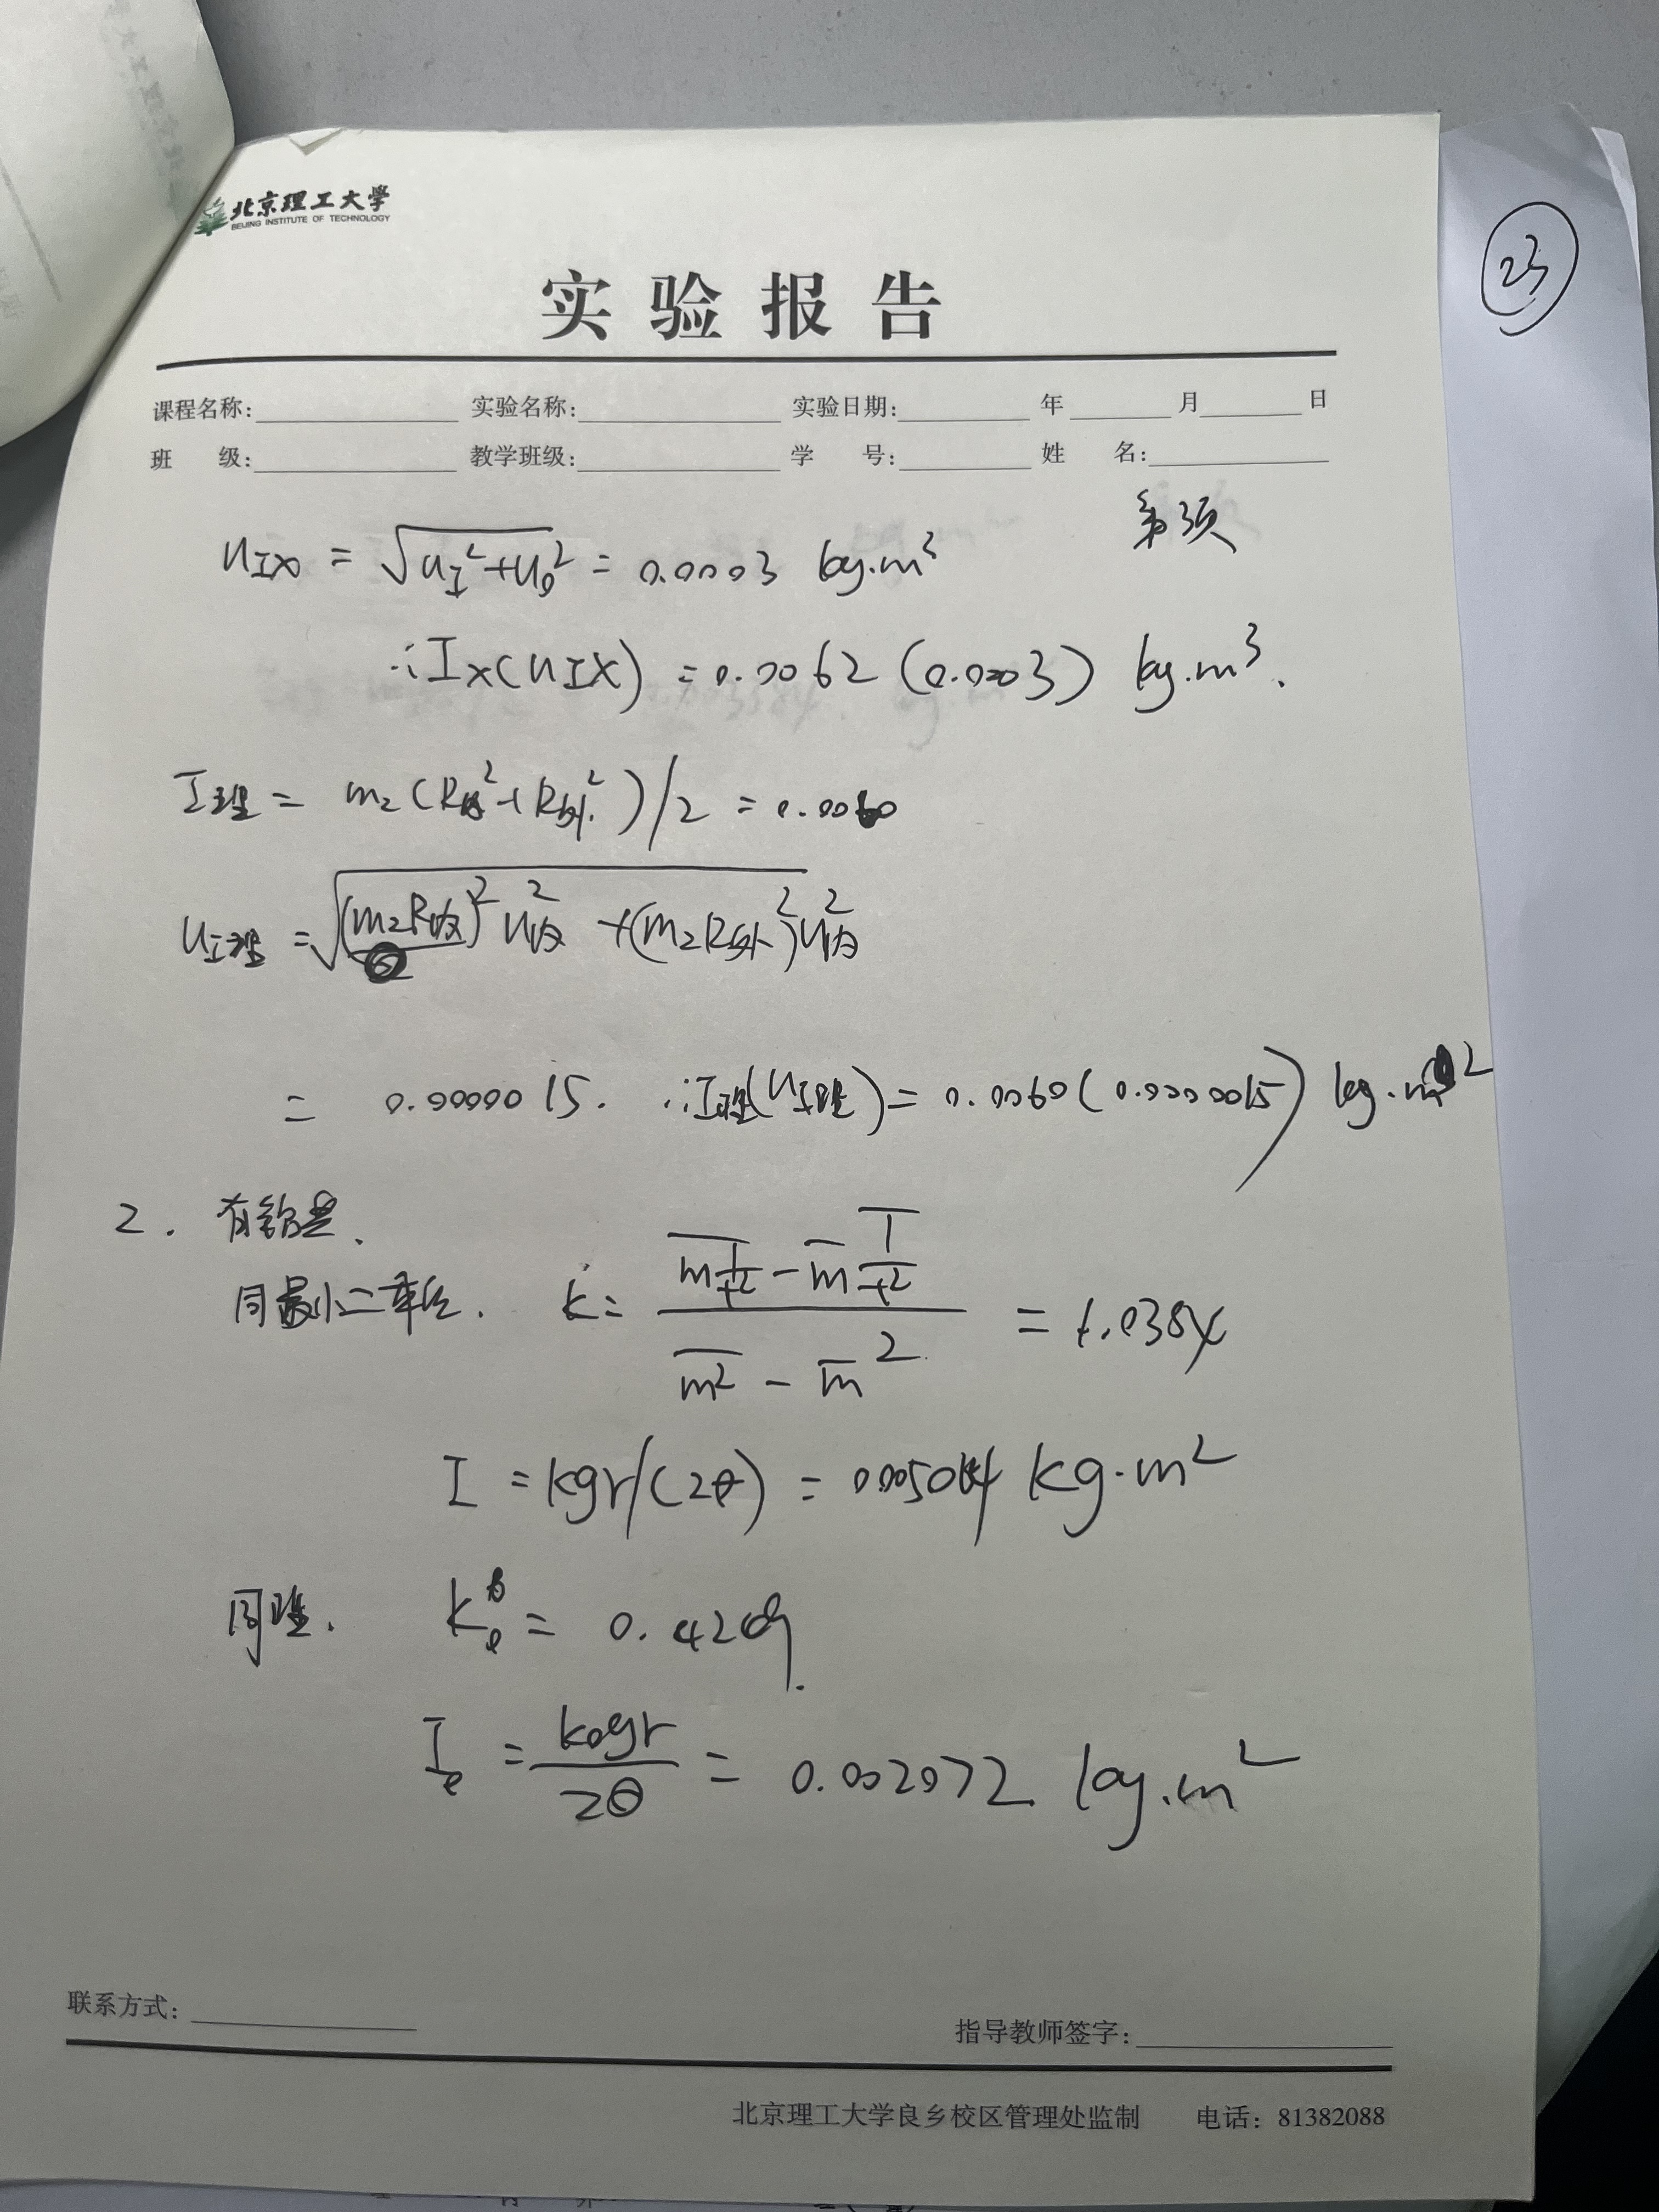 北京理工大学
BEIJING INSTITUTE OF TECHNOLOGY
23
实验报告
课程名称: 实验名称: 实验日期: 年 月 日
班 级: 教学班级: 学 号: 姓 名:
第3页
u_IX = √(u_I² + u_0²) = 0.0003 kg·m³
∴ I_X(u_IX) = 0.0062 (0.0003) kg·m³.
I理 = m₂(R内² + R外²)/2 = 0.0060
u_I理 = √((m₂R内)² u内² + (m₂R外)² u内²)
= 0.0000015. ∴ I理(u_I理) = 0.0060(0.0000015) kg·m²
2.
同最小二乘法. k = (m̅1̅/̅t̅²̅ - m̅ 1̅/̅t̅²̅) / (m̅²̅ - m̅²) = 1.0384
I = kgr/(2θ) = kg·m²
同理. = 0.4209.
I₀ = k₀gr/2θ = 0.002072 kg·m²
联系方式:
指导教师签字:
北京理工大学良乡校区管理处监制 电话: 81382088